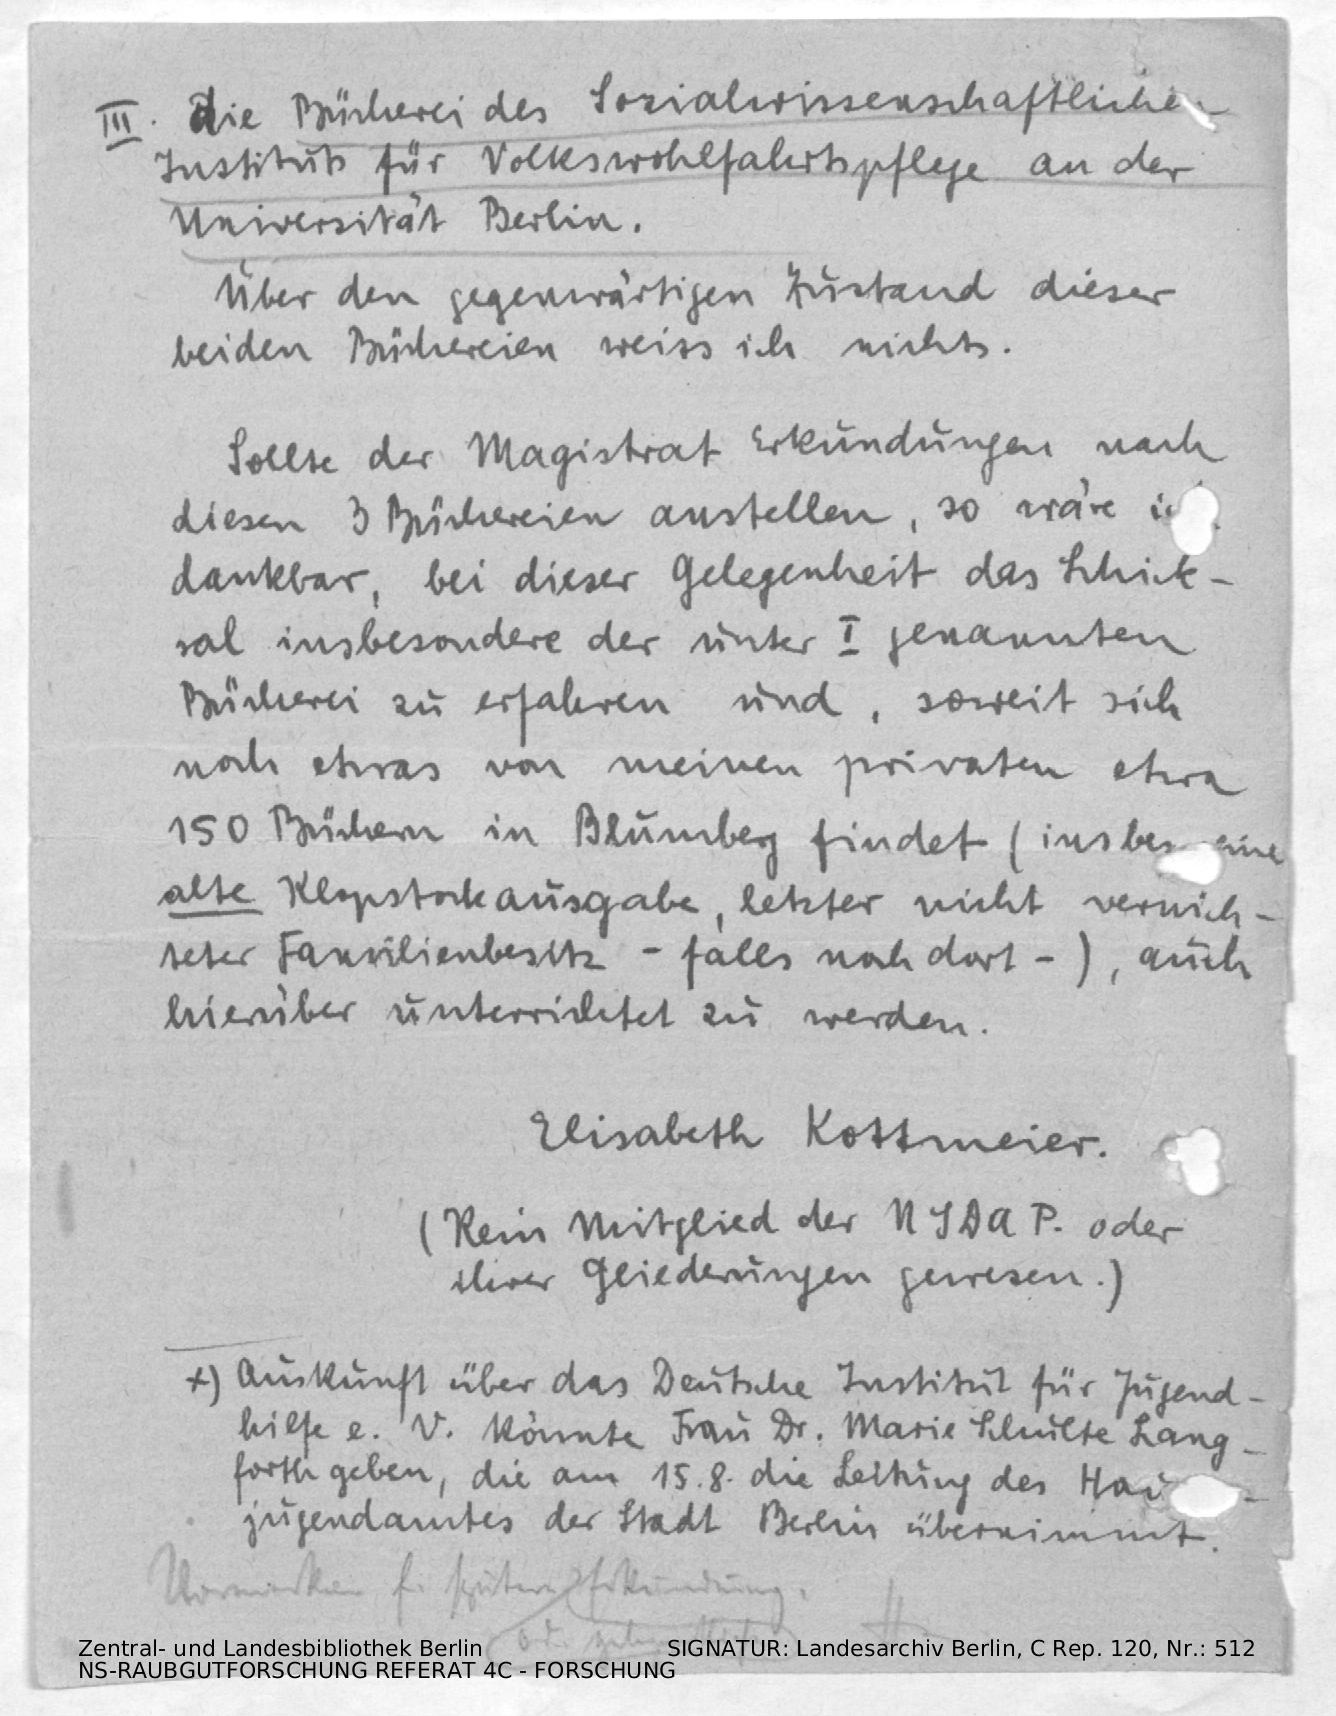 III. Die Bücherei des Sozialwissenschaftlichen
Instituts für Volkswohlfahrtspflege an der
Universität Berlin.
Über den gegenwärtigen Zustand dieser
beiden Büchereien weiss ich nichts.
Sollte der Magistrat Erkundungen nach
diesen 3 Büchereien anstellen, so wäre ich
dankbar, bei dieser Gelegenheit das Schick-
sal insbesondere der unter I genannten
Bücherei zu erfahren und, soweit sich
noch etwas von meinen privaten etwa
150 Büchern in Blumberg findet (insbes. eine
alte Klopstockausgabe, letzter nicht vernich-
teter Familienbesitz - falls noch dort -), auch
hierüber unterrichtet zu werden.
Elisabeth Kottmeier.
(Kein Mitglied der NSDAP. oder
ihrer Gliederungen gewesen.)
x) Auskunft über das Deutsche Institut für Jugend-
hilfe e. V. könnte Frau Dr. Marie Schulte Lang-
forth geben, die am 15.8. die Leitung des Haupt-
jugendamtes der Stadt Berlin übernimmt.
Vormerken f. spätere Erkundung.
Zentral- und Landesbibliothek Berlin SIGNATUR: Landesarchiv Berlin, C Rep. 120, Nr.: 512
NS-RAUBGUTFORSCHUNG REFERAT 4C - FORSCHUNG